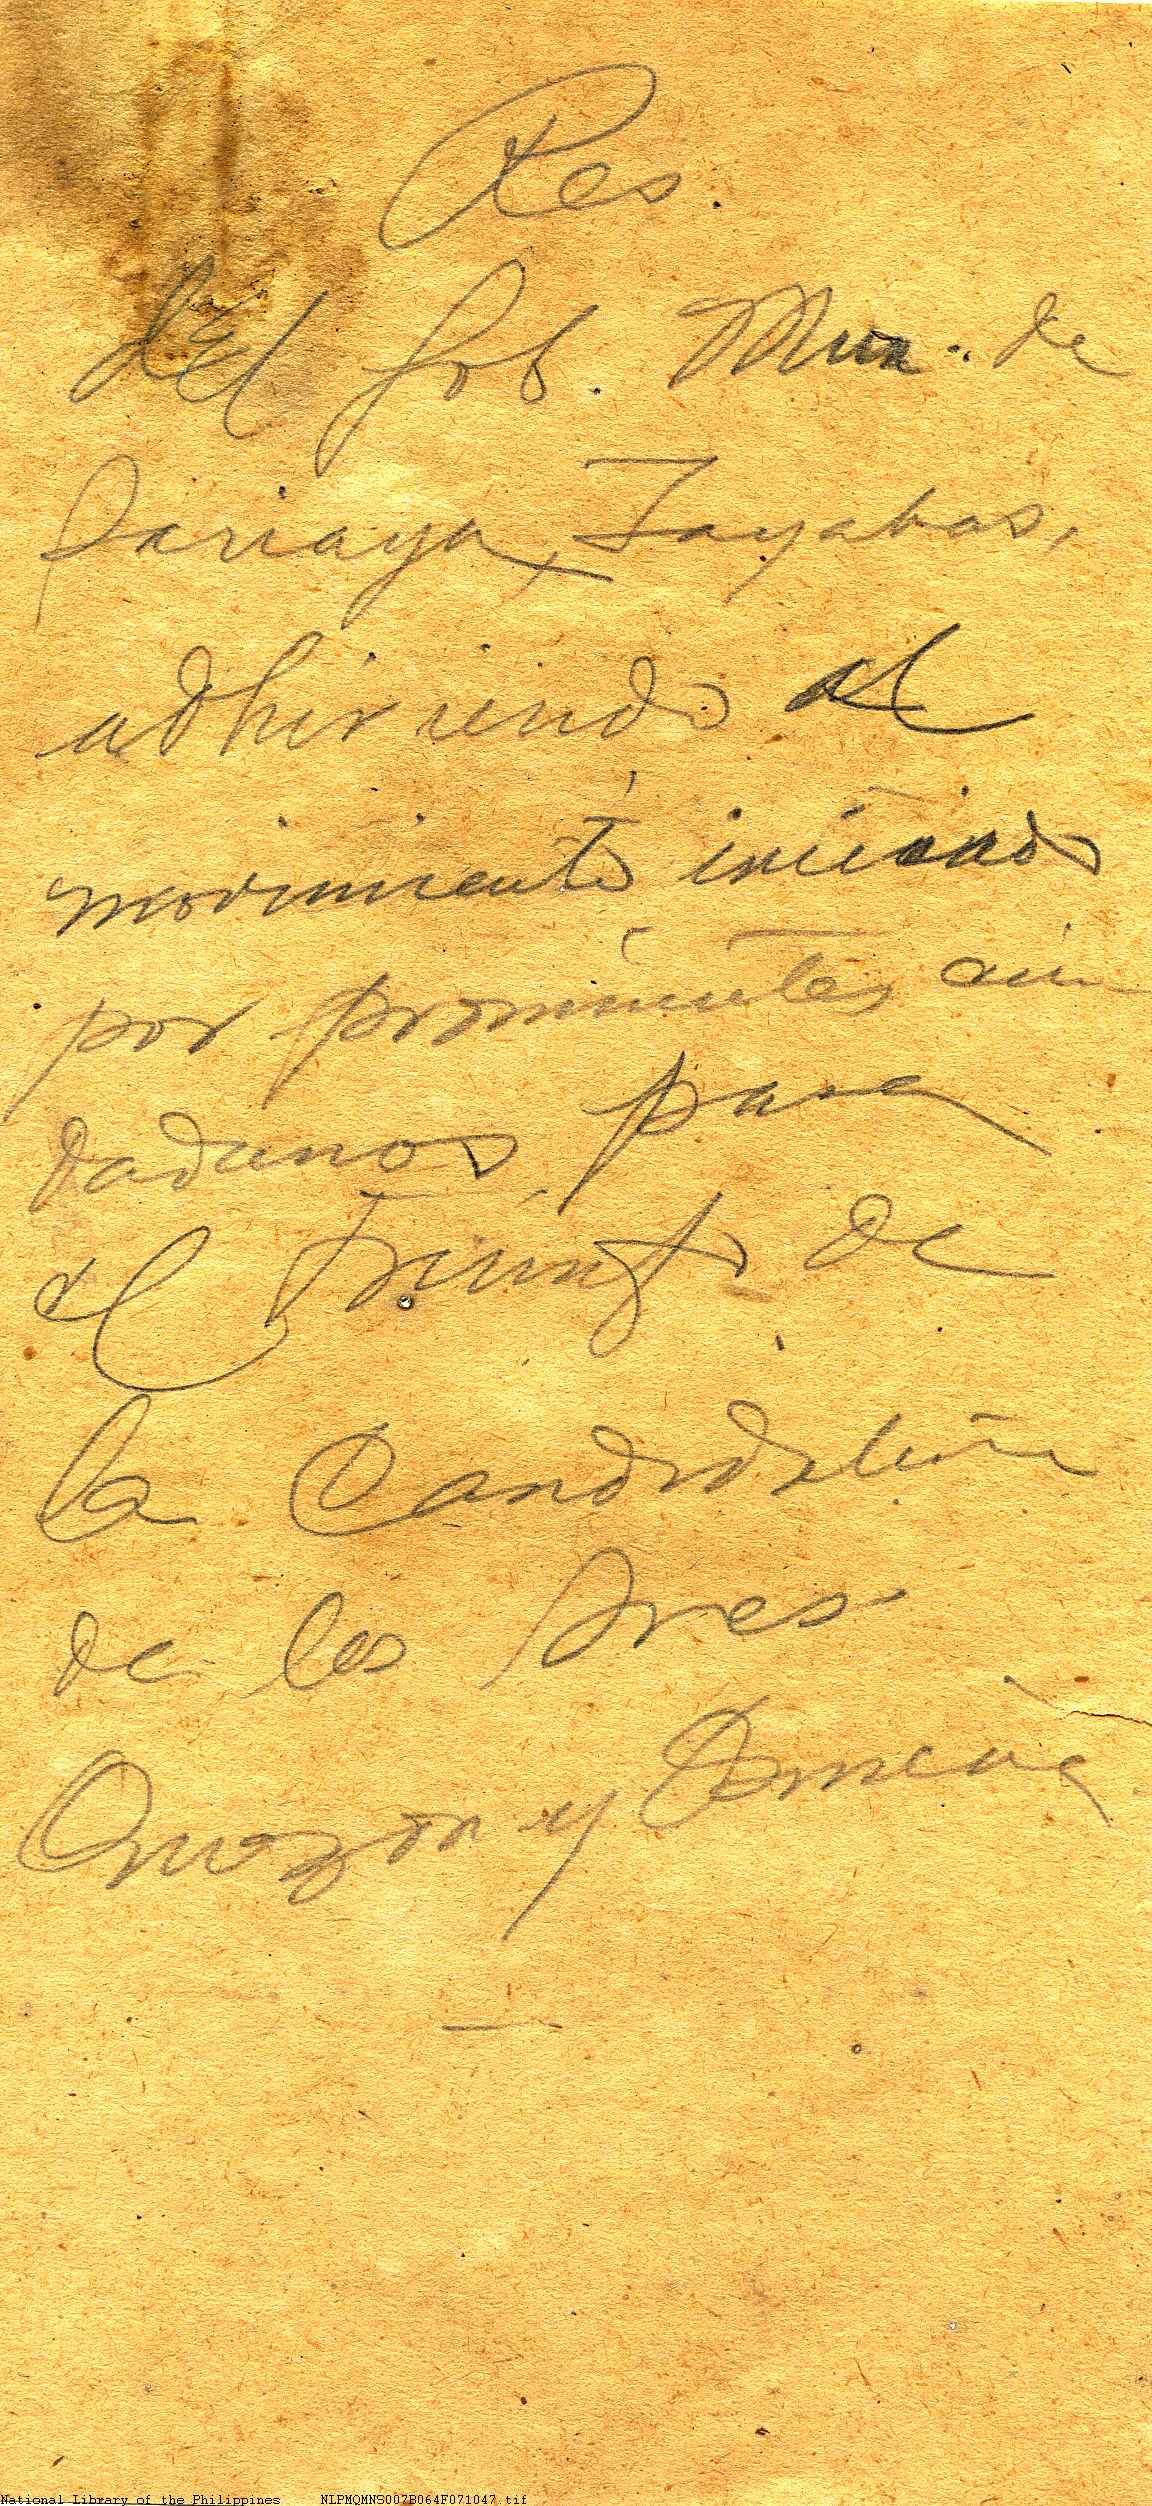 Res.
del Gob. Mun. de
Sariaya, Tayabas,
adhiriendo al
movimiento iniciado
por prominentes ciu
dadanos, para
el triunfo de
la candidatura
de los Sres.
Quezon y Osmeña
National Library of the Philippines NLPMQMNS007B064F071047.tif